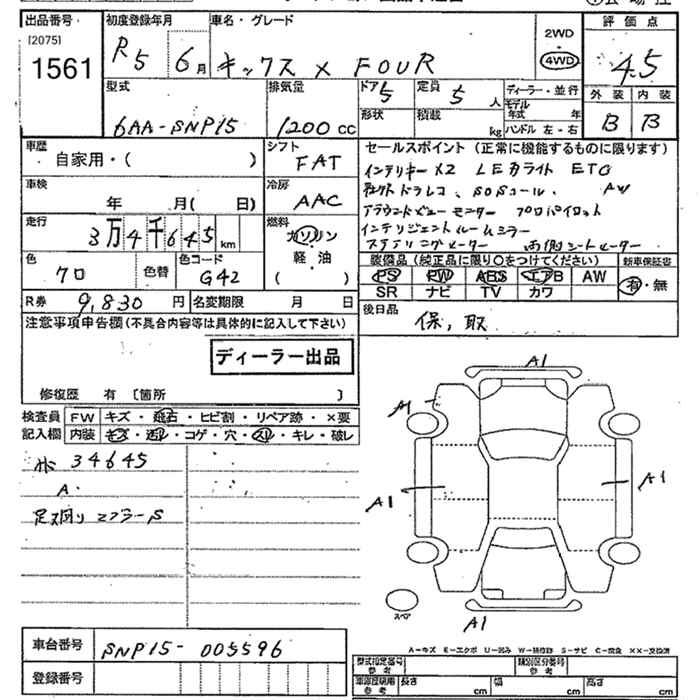 出品番号
[2075]
1561
初度登録年月
R5 6月
車名・グレード
キックス X FOUR
2WD
4WD
評価点
4.5
外装 内装
B B
型式
6AA-SNP15
排気量
1200 cc
ドア 5
定員 5 人
形状
積載 kg
ディーラー・並行
モデル年式 年
ハンドル 左・右
車歴
自家用・( )
シフト
FAT
セールスポイント (正常に機能するものに限ります)
インテリキー X2 LEDライト ETC
ドラレコ、SOSコール、 AW
アラウンドビューモニター プロパイロット
インテリジェントルームミラー
ステアリングヒーター 両側シートヒーター
車検
年 月( 日)
冷房
AAC
走行
3万4千645km
燃料
ガソリン
軽・油
( )
色
クロ
色替
色コード
G42
装備品(純正品に限り○をつけてください)
新車保証書
PS PW ABS エアB AW
SR ナビ TV カワ
有・無
R券 9,830 円
名変期限 月 日
後日品
保,取
注意事項申告欄(不具合内容等は具体的に記入して下さい)
ディーラー出品
修復歴 有 〔箇所 〕
検査員
記入欄
FW キズ・飛石・ヒビ割・リペア跡・×要
内装 キズ・汚レ・コゲ・穴・スレ・キレ・破レ
34645
A.
足廻り マフラーS
A1
A1
A1
A1
A1
スペア
車台番号
SNP15-005596
登録番号
A-キズ E-エクボ U-凹み W-補修跡 S-サビ C-腐食 XX-交換済
型式指定番号
参考
類別区分番号
参考
車両諸元用
参考
長さ cm
幅 cm
高さ cm